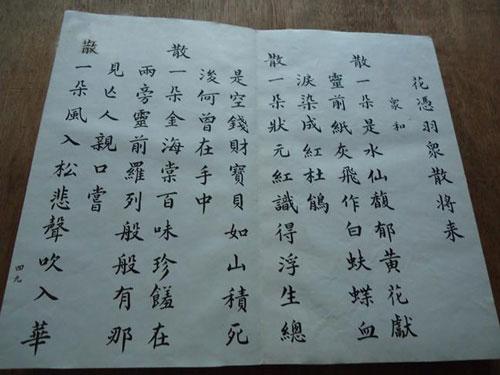 花憑羽衆散將来
衆和
散一朵是水仙馥郁黃花獻
靈前紙灰飛作白蚨蝶血
淚染成紅杜鵑
散一朵狀元紅識得浮生總
是空錢財寶貝如山積死
後何曾在手中
散一朵金海棠百味珍饈在
兩旁靈前羅列般般有那
見亡人親口嘗
散一朵風入松悲聲吹入華
四九